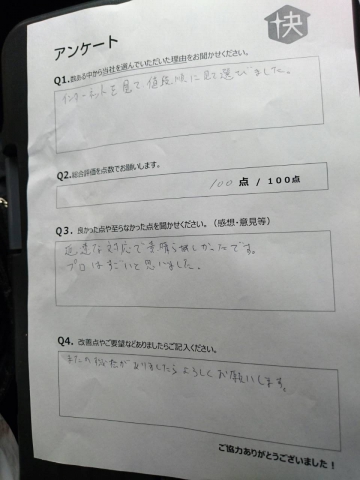 快
アンケート
Q1.数ある中から当社を選んでいただいた理由をお聞かせください。
インターネットを見て、値段順に見て選びました。
Q2.総合評価を点数でお願いします。
100 点 / 100点
Q3. 良かった点や至らなかった点を聞かせください。（感想・意見等）
迅速な対応で素晴らしかったです。
プロはすごいと思いました。
Q4. 改善点やご要望などありましたらご記入ください。
またの機会がありましたらよろしくお願いします。
ご協力ありがとうございました！